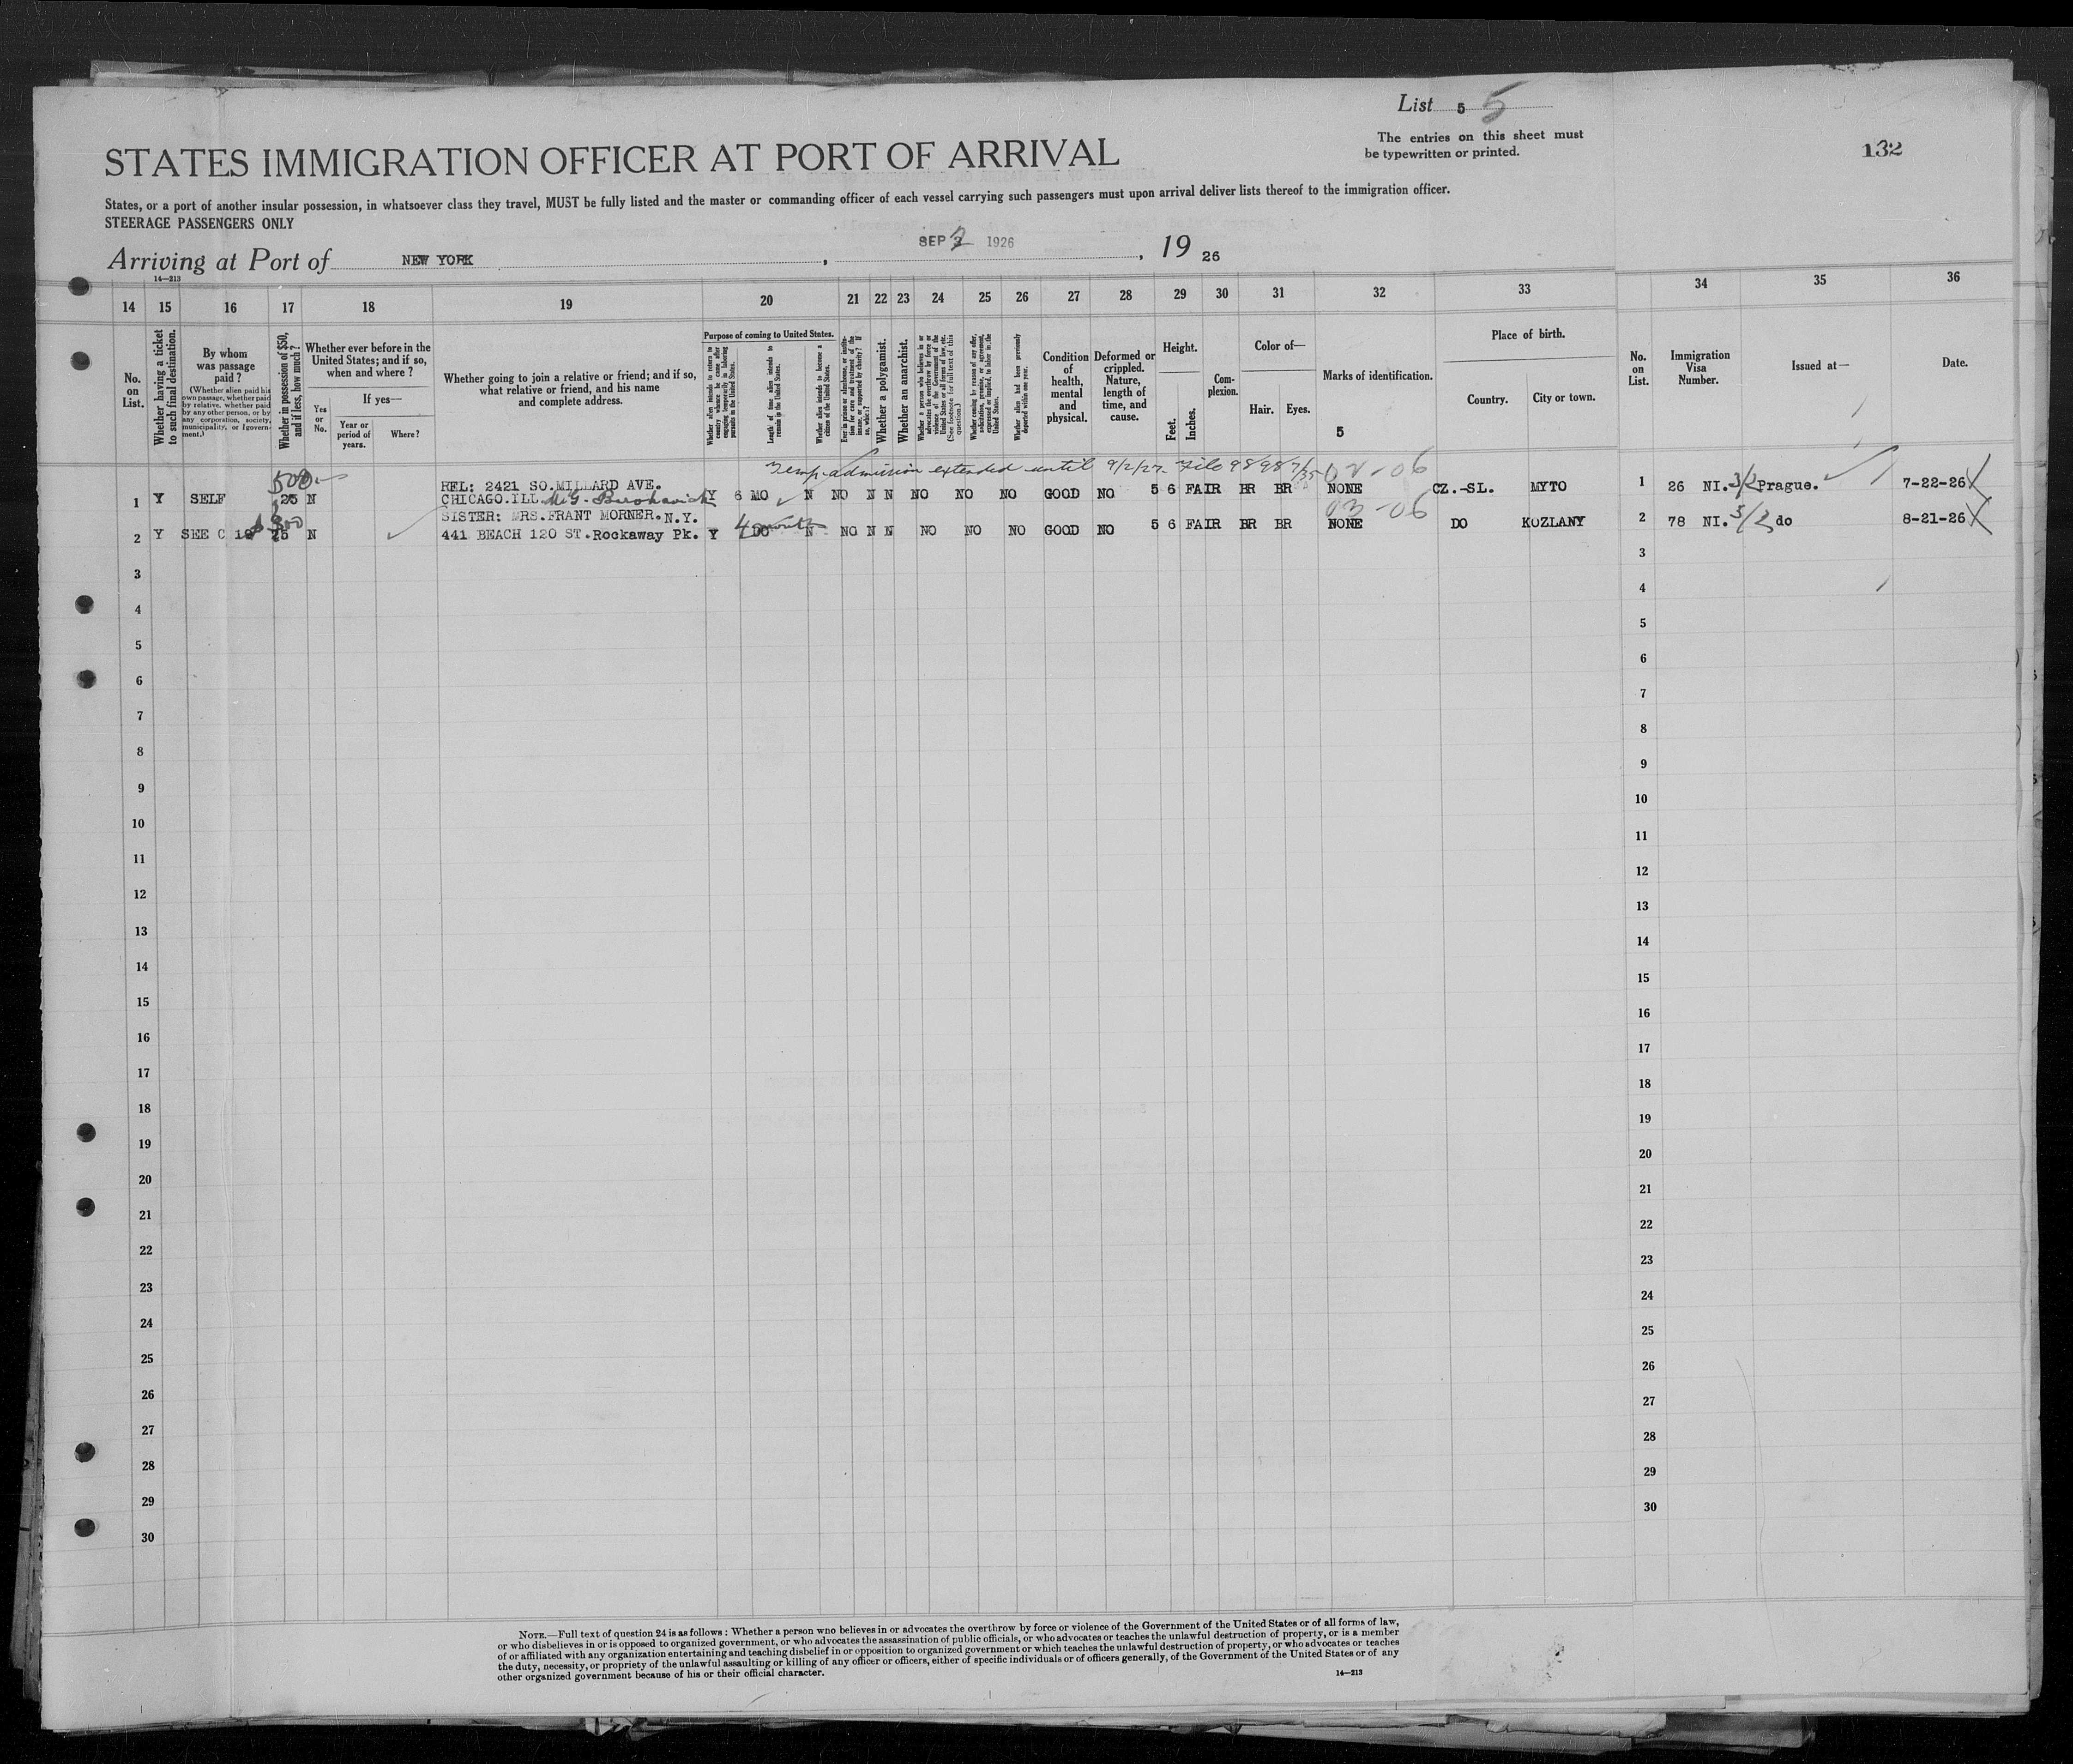 List 5 5
The entries on this sheet must
be typewritten or printed.
132
STATES IMMIGRATION OFFICER AT PORT OF ARRIVAL
States, or a port of another insular possession, in whatsoever class they travel, MUST be fully listed and the master or commanding officer of each vessel carrying such passengers must upon arrival deliver lists thereof to the immigration officer.
STEERAGE PASSENGERS ONLY
Arriving at Port of NEW YORK, SEP 2 1926, 19 26
14—213
14 15 16 17 18 19 20 21 22 23 24 25 26 27 28 29 30 31 32 33 34 35 36
No. on List.
Whether having a ticket to such final destination.
By whom was passage paid?
(Whether alien paid his own passage, whether paid by relative, whether paid by any other person, or by any corporation, society, municipality, or government.)
Whether in possession of $50, and if less, how much?
Whether ever before in the United States; and if so, when and where?
Yes or No.
If yes—
Year or period of years.
Where?
Whether going to join a relative or friend; and if so, what relative or friend, and his name and complete address.
Purpose of coming to United States.
Whether alien intends to return to country whence he came after engaging temporarily in laboring pursuits in the United States.
Length of time alien intends to remain in the United States.
Whether alien intends to become a citizen of the United States.
Ever in prison or almshouse, or institution for care and treatment of the insane, or supported by charity? If so, which?
Whether a polygamist.
Whether an anarchist.
Whether a person who believes in or advocates the overthrow by force or violence of the Government of the United States or all forms of law, etc. (See footnote for full text of this question.)
Whether coming by reason of any offer, solicitation, promise, or agreement, expressed or implied, to labor in the United States.
Whether alien had been previously deported within one year.
Condition of health, mental and physical.
Deformed or crippled. Nature, length of time, and cause.
Height.
Feet. Inches.
Complexion.
Color of—
Hair. Eyes.
Marks of identification.
5
Place of birth.
Country. City or town.
No. on List.
Immigration Visa Number.
Issued at—
Date.
Temp admission extended until 9/2/27 File 98987/35 02-06
500
REL: 2421 SO.MILLARD AVE.
1 Y SELF 25 N CHICAGO.ILL Y 6 MO N NO N N NO NO NO GOOD NO 5 6 FAIR BR BR NONE CZ.-SL. MYTO 1 26 NI. 3/2 Prague. 7-22-26
$300 SISTER: MRS.FRANT MORNER. N.Y. 4 months 03-06
2 Y SEE C 19 25 N 441 BEACH 120 ST. Rockaway Pk. Y DO N NO N N NO NO NO GOOD NO 5 6 FAIR BR BR NONE DO KOZLANY 2 78 NI. 3/2 do 8-21-26
3 3
4 4
5 5
6 6
7 7
8 8
9 9
10 10
11 11
12 12
13 13
14 14
15 15
16 16
17 17
18 18
19 19
20 20
21 21
22 22
23 23
24 24
25 25
26 26
27 27
28 28
29 29
30 30
NOTE.—Full text of question 24 is as follows: Whether a person who believes in or advocates the overthrow by force or violence of the Government of the United States or of all forms of law,
or who disbelieves in or is opposed to organized government, or who advocates the assassination of public officials, or who advocates or teaches the unlawful destruction of property, or is a member
of or affiliated with any organization entertaining and teaching disbelief in or opposition to organized government or which teaches the unlawful destruction of property, or who advocates or teaches
the duty, necessity, or propriety of the unlawful assaulting or killing of any officer or officers, either of specific individuals or of officers generally, of the Government of the United States or of any
other organized government because of his or their official character.
14—213